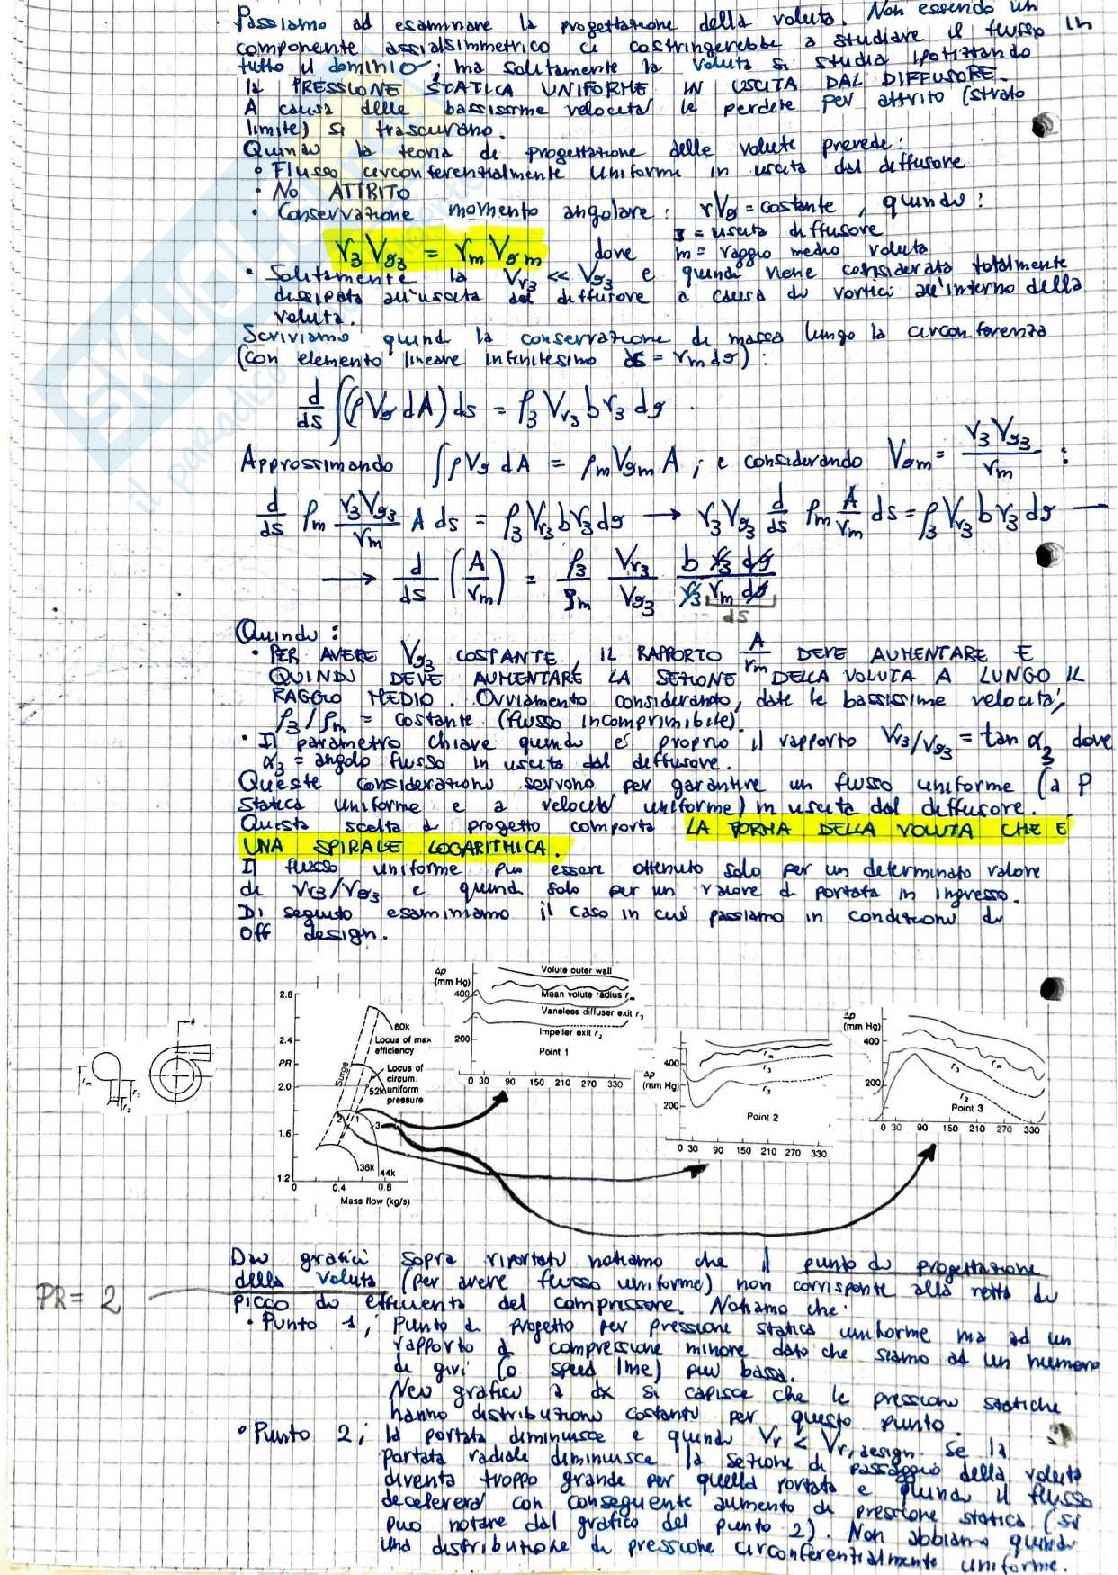 Passiamo ad esaminare la progettazione della voluta. Non essendo un
componente assialsimmetrico ci costringerebbe a studiare il flusso in
tutto il dominio; ma solitamente la voluta si studia ipotizzando
la PRESSIONE STATICA UNIFORME IN USCITA DAL DIFFUSORE.
A causa delle bassissime velocità le perdite per attrito (strato
limite) si trascurano.
Quindi la teoria di progettazione delle volute prevede:
• Flusso circonferenzialmente uniforme in uscita dal diffusore
• NO ATTRITO
• Conservazione momento angolare: rVθ = costante, quindi:
3 = uscita diffusore
r3 Vθ3 = rm Vθm dove m = raggio medio voluta
• Solitamente la Vr3 << Vθ3 e quindi viene considerata totalmente
dissipata all'uscita del diffusore a causa di vortici all'interno della
voluta.
Scriviamo quindi la conservazione di massa lungo la circonferenza
(con elemento lineare infinitesimo ds = rm dθ):
d/ds ∫(ρVθ dA) ds = ρ3 Vr3 b r3 dθ.
Approssimando ∫ρVθ dA = ρm Vθm A ; e considerando Vθm = r3Vθ3/rm :
d/ds ρm r3Vθ3/rm A ds = ρ3 Vr3 b r3 dθ → r3 Vθ3 d/ds ρm A/rm ds = ρ3 Vr3 b r3 dθ →
→ d/ds (A/rm) = ρ3/ρm Vr3/Vθ3 b r3 dθ/r3 rm dθ
ds
Quindi:
• PER AVERE Vθ3 COSTANTE, IL RAPPORTO A/rm DEVE AUMENTARE E
QUINDI DEVE AUMENTARE LA SEZIONE DELLA VOLUTA A LUNGO IL
RAGGIO MEDIO. Ovviamente considerando, date le bassissime velocità,
ρ3/ρm = costante (flusso incomprimibile)
• Il parametro chiave quindi è proprio il rapporto Vr3/Vθ3 = tan α3 dove
α3 = angolo flusso in uscita dal diffusore.
Queste considerazioni servono per garantire un flusso uniforme (a P
statica uniforme e a velocità uniforme) in uscita dal diffusore.
Questa scelta di progetto comporta LA FORMA DELLA VOLUTA CHE È
UNA SPIRALE LOGARITMICA.
Il flusso uniforme può essere ottenuto solo per un determinato valore
di Vr3/Vθ3 e quindi solo per un valore di portata in ingresso.
Di seguito esaminiamo il caso in cui passiamo in condizioni di
off design.
Δp
(mm Hg)
400
200
Volute outer wall
Mean volute radius rm
Vaneless diffuser exit r3
Impeller exit r2
Point 1
0 30 90 150 210 270 330
2.8
2.4
PR
2.0
1.6
1.2
0 0.4 0.8
Mass flow (kg/s)
Surge
60k
Locus of max
efficiency
Locus of
circum.
uniform
pressure
52k
2 1 3
36k
44k
Δp
(mm Hg)
400
200
rm
r3
r2
Point 2
0 30 90 150 210 270 330
Δp
(mm Hg)
400
200
rm
r3
r2
Point 3
0 30 90 150 210 270 330
Dai grafici sopra riportati notiamo che il punto di progettazione
della voluta (per avere flusso uniforme) non corrisponde alla retta di
PR = 2
picco di efficienza del compressore. Notiamo che:
• Punto 1; Punto di progetto per pressione statica uniforme ma ad un
rapporto di compressione minore dato che siamo ad un numero
di giri (o speed line) più bassa.
Nei grafici a dx si capisce che le pressioni statiche
hanno distribuzioni costanti per questo punto.
• Punto 2; la portata diminuisce e quindi Vr < Vr,design. Se la
portata radiale diminuisce la sezione di passaggio della voluta
diventa troppo grande per quella portata e quindi il flusso
decelererà con conseguente aumento di pressione statica (si
può notare dal grafico del punto 2). Non abbiamo quindi
una distribuzione di pressione circonferenzialmente uniforme.